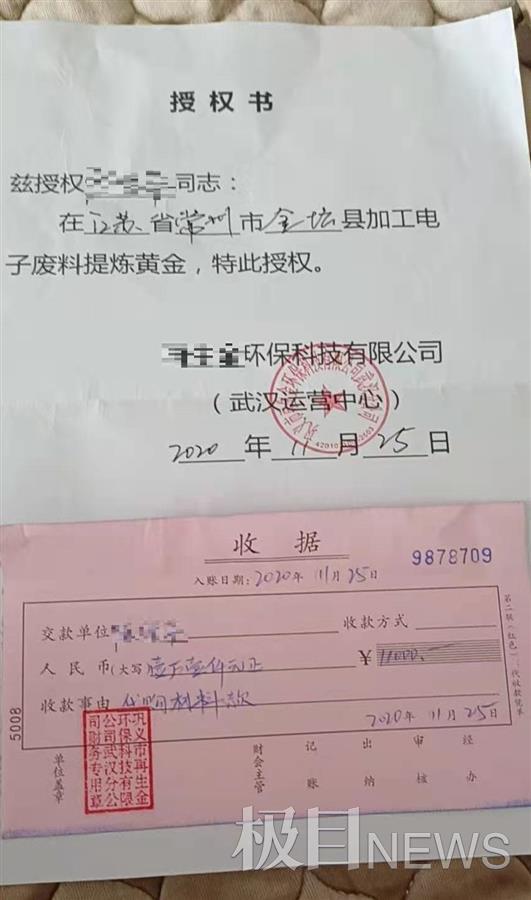 授 权 书
兹授权 同志：
在 江苏 省 常州 市 金坛 县加工电
子废料提炼黄金，特此授权。
环保科技有限公司
（武汉运营中心）
2020 年 11 月 25 日
收 据
9878709
入账日期：2020年 11月 25日
交款单位 收款方式
人 民 币(大写) 壹万壹仟元正 ￥11000.-
收款事由 代购材料款
2020 年 11 月 25
5008
单位盖章
巩义市再生金
环保科技有限
公司武汉分公
司财务专用章
财会主管 记账 出纳 审核 经办
第二联（红色）：代收款凭单
极目NEWS